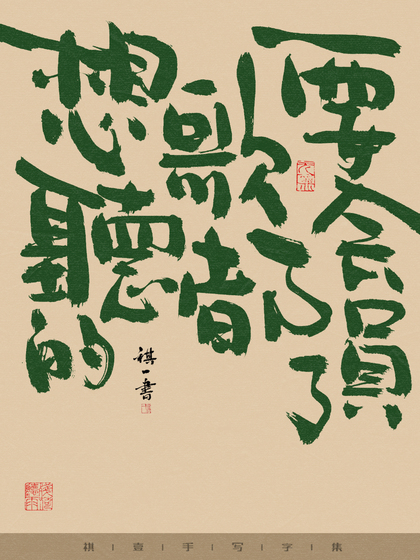 想聽的
歌都
要會員了
祺一書
祺|壹|手|写|字|集